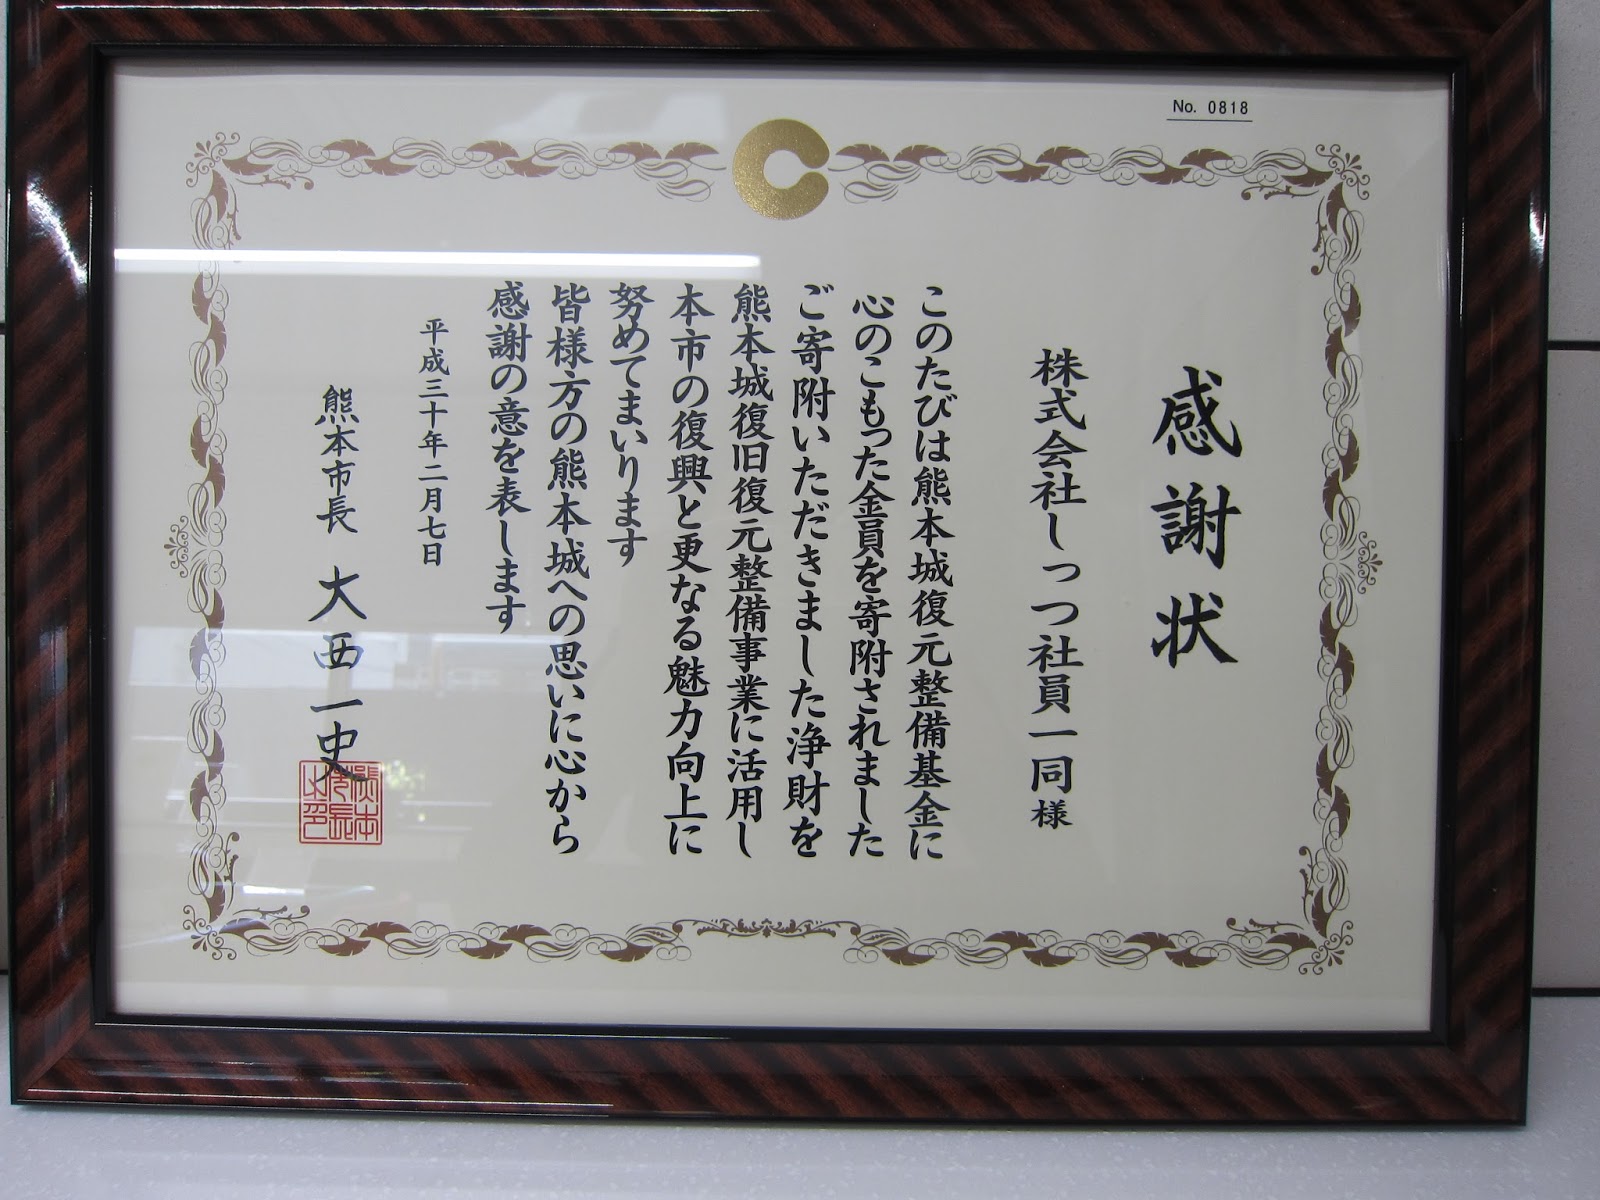 No. 0818
感謝状
株式会社しっつ社員一同様
このたびは熊本城復元整備基金に
心のこもった金員を寄附されました
ご寄附いただきました浄財を
熊本城復旧復元整備事業に活用し
本市の復興と更なる魅力向上に
努めてまいります
皆様方の熊本城への思いに心から
感謝の意を表します
平成三十年二月七日
熊本市長 大西一史
熊本市長之印